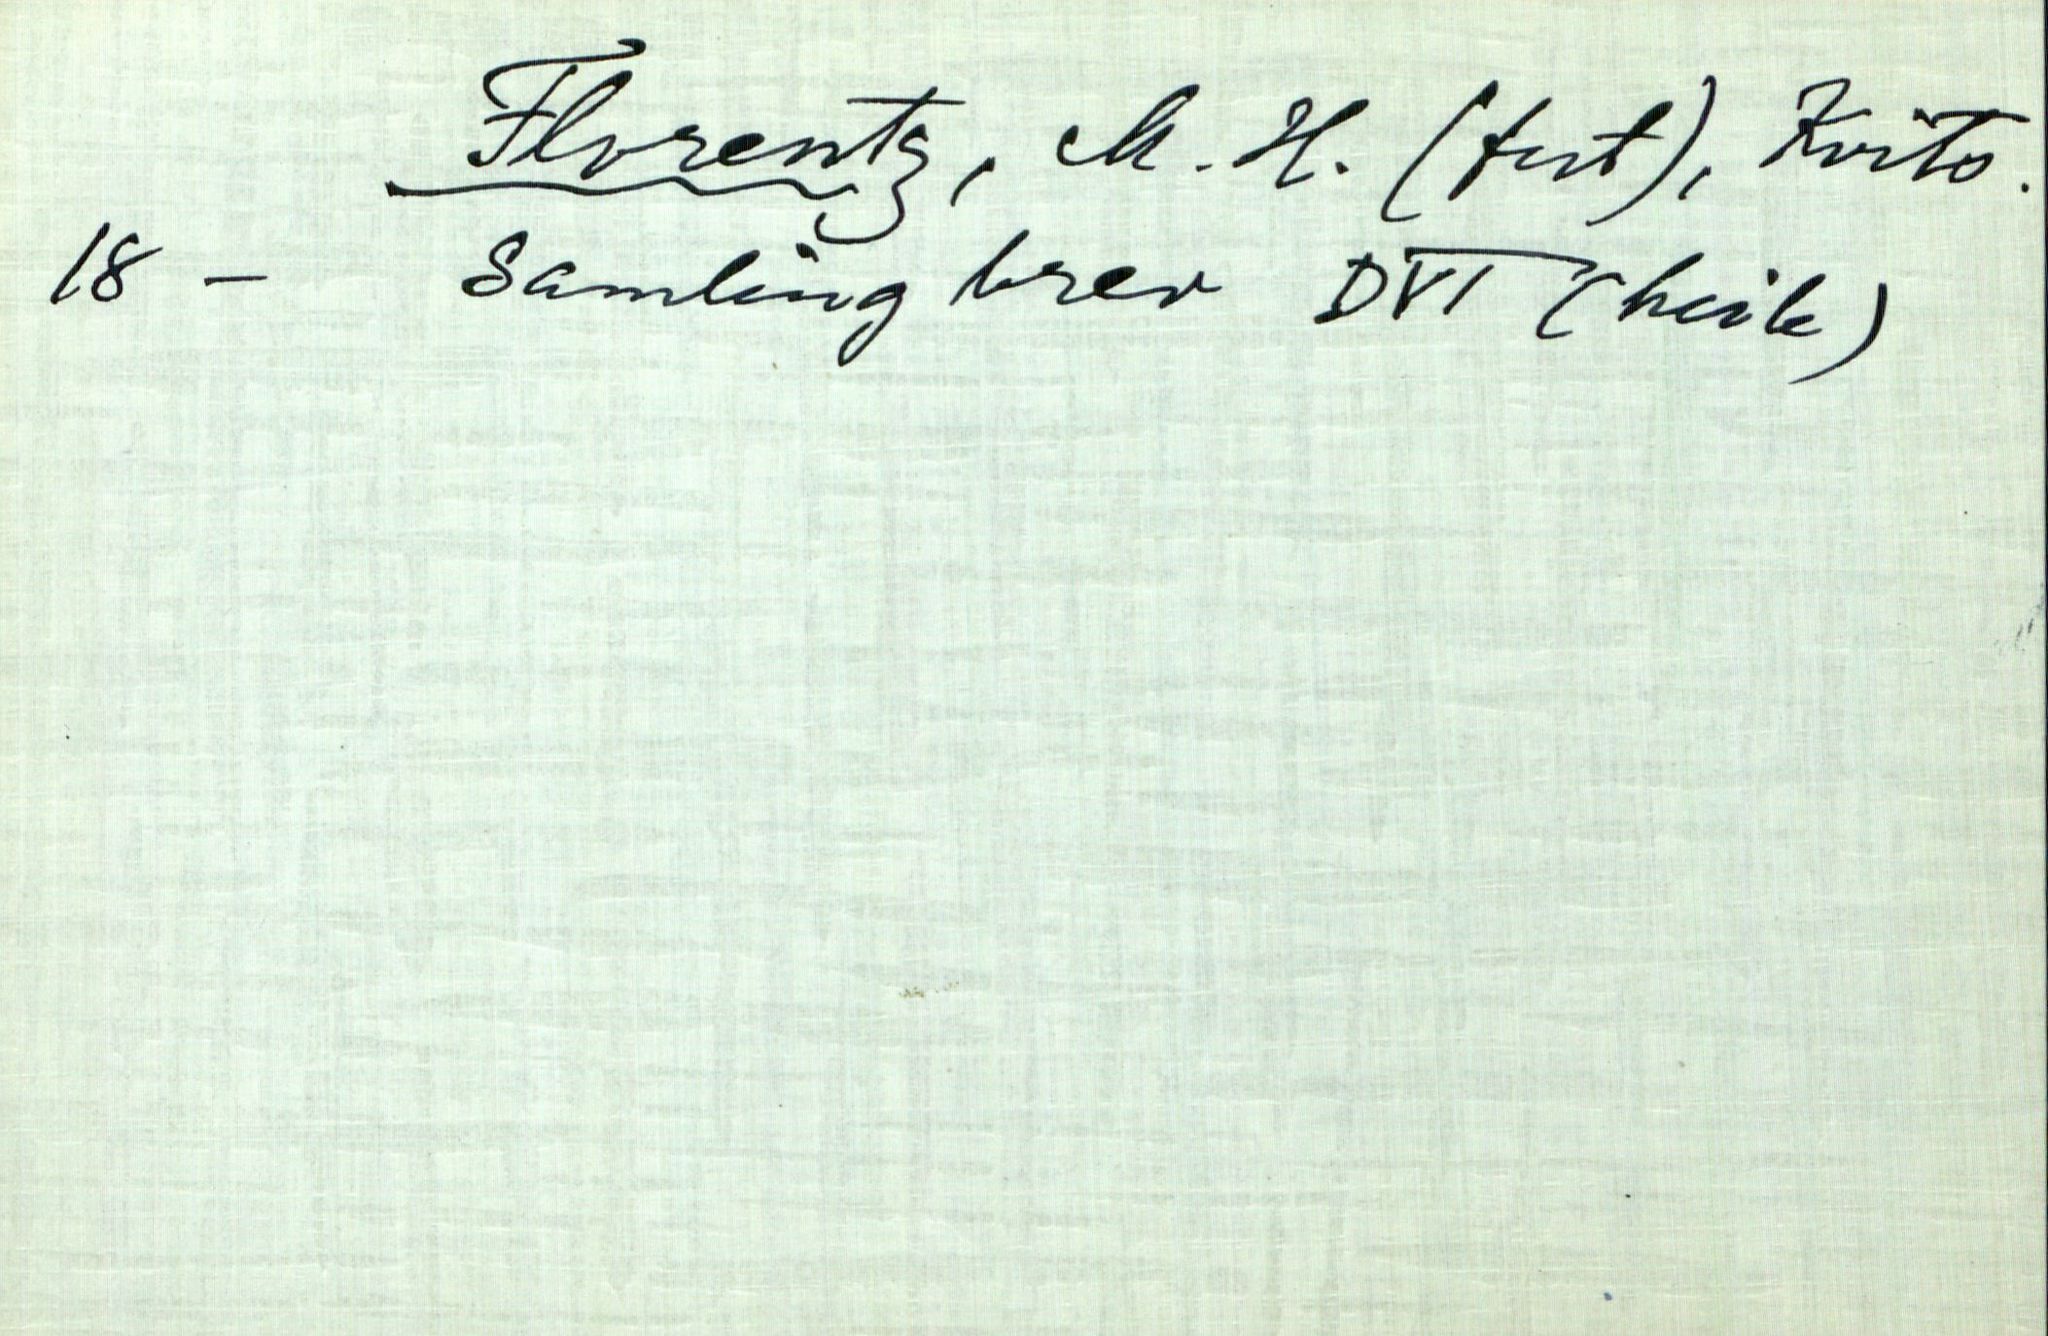 Florentz, M. H. (fert), Kvito.
18 - Samling brev DVT (heile)